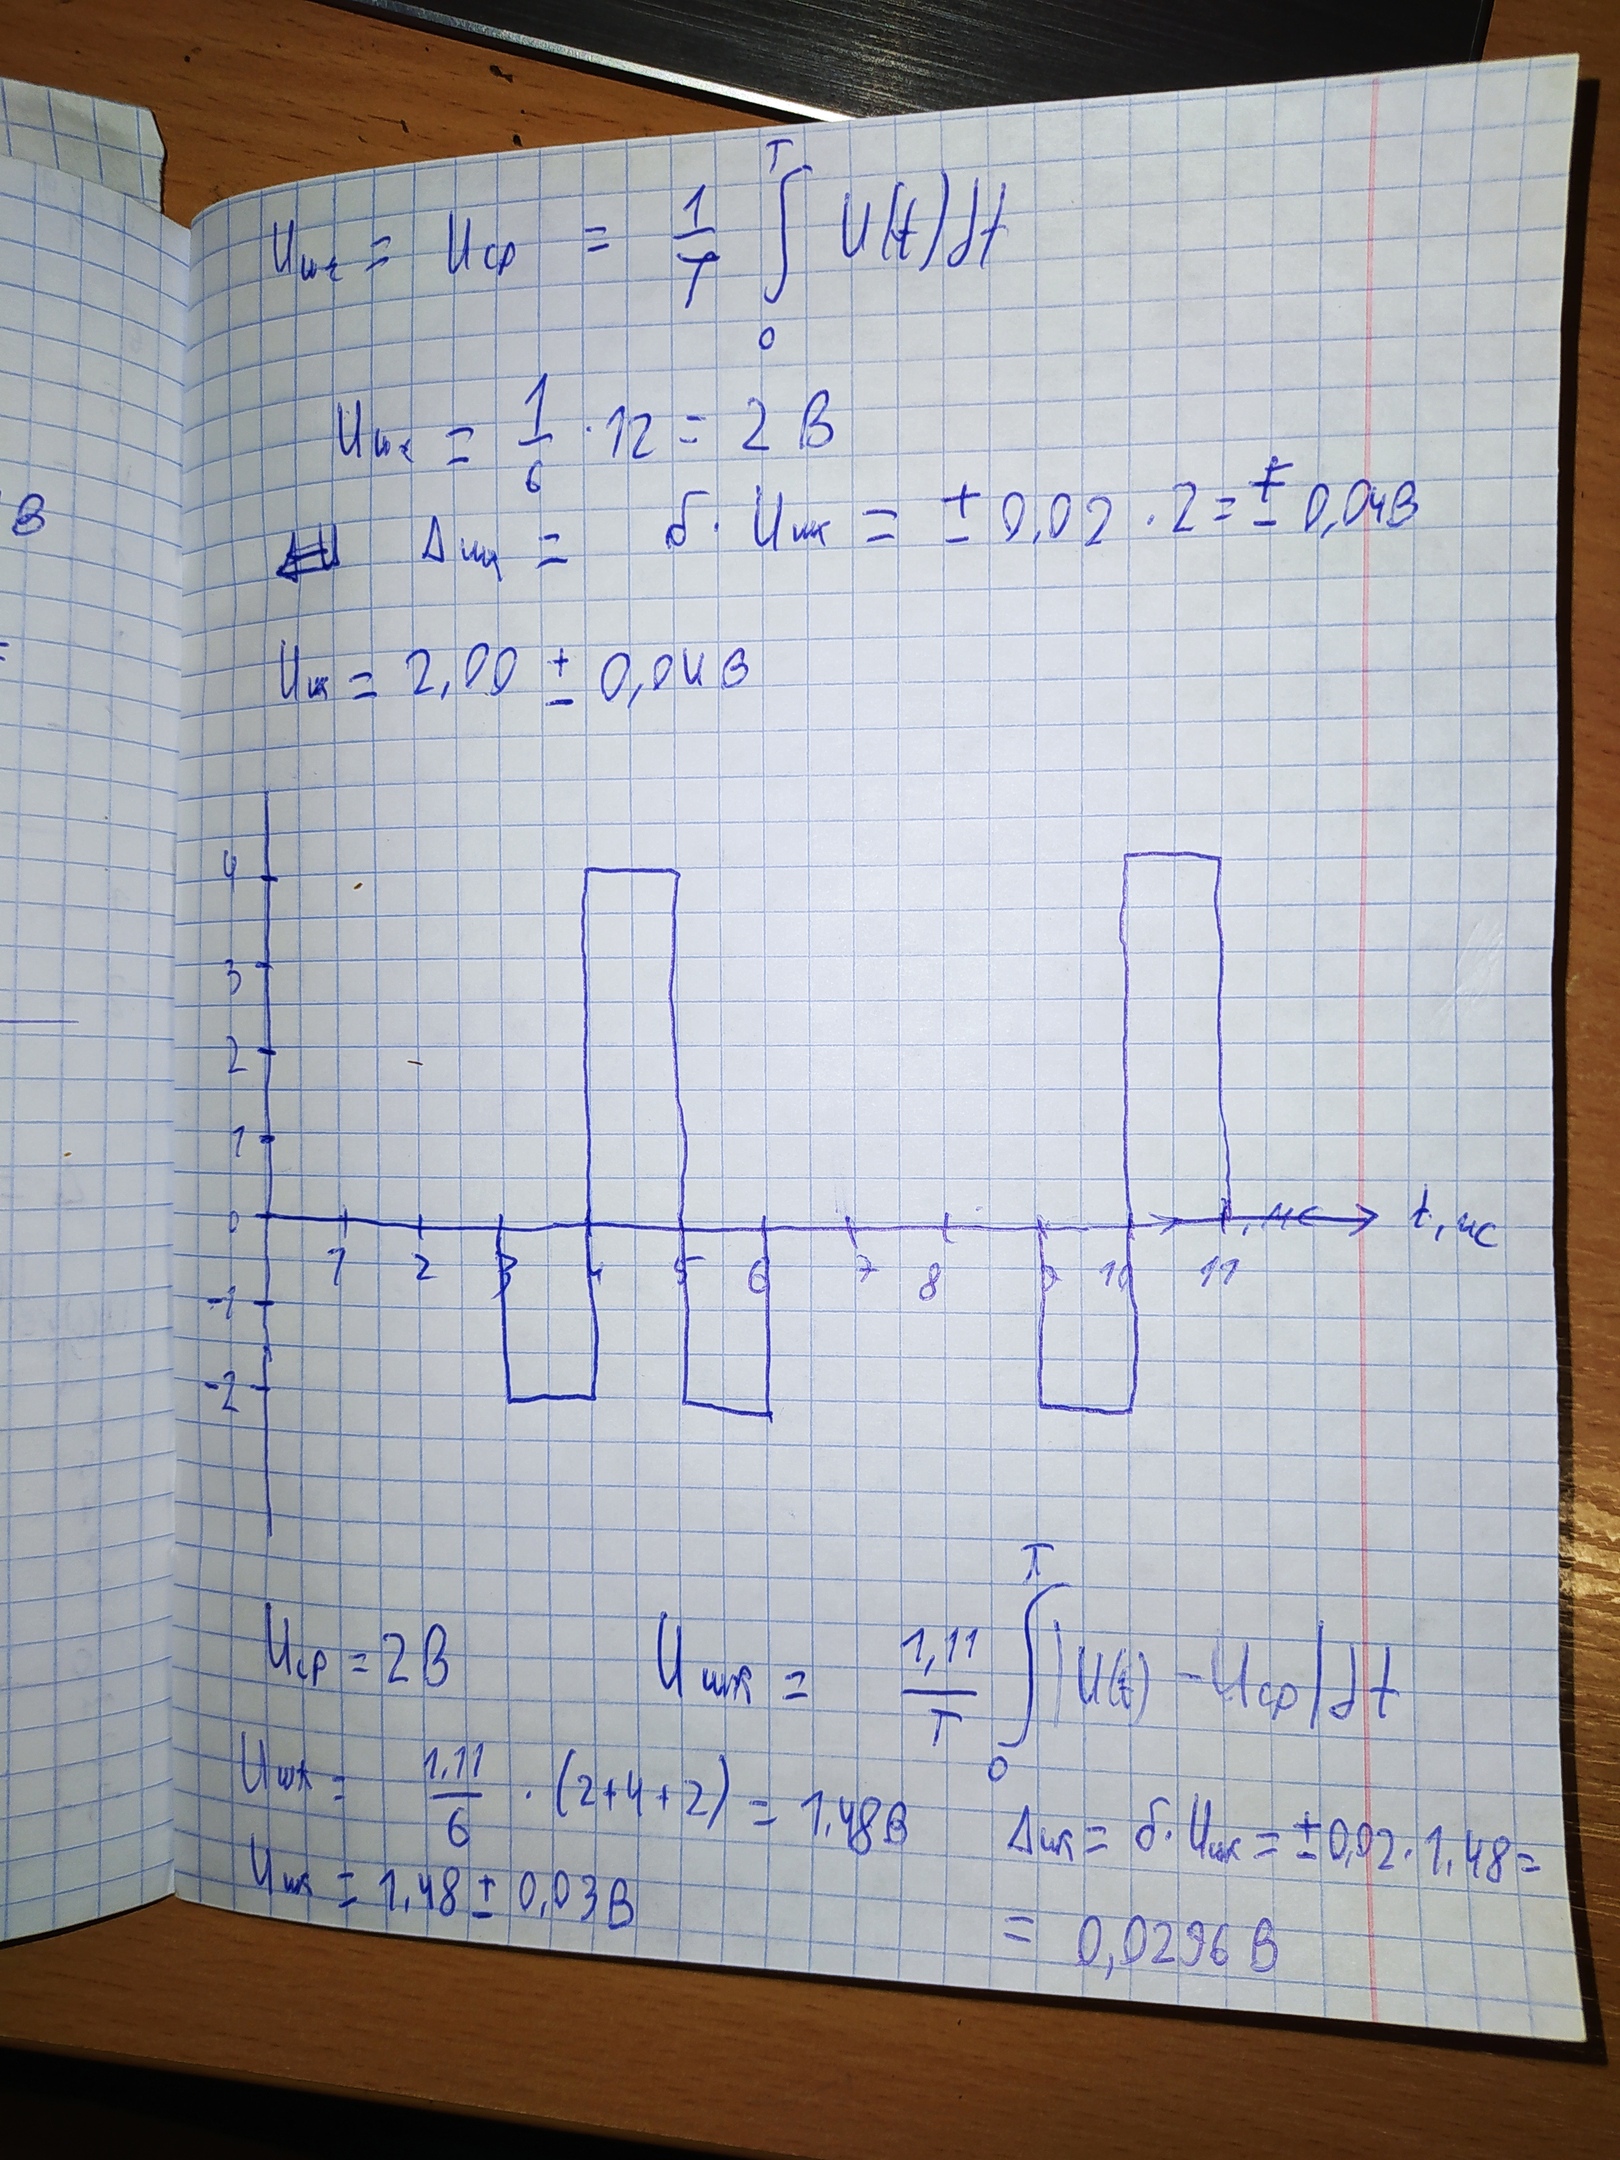 В
=
Uшк = Uср = 1/T ∫₀ᵀ U(t)dt
Uшк = 1/6 · 12 = 2 В
Δшк = δ · Uшк = ± 0,02 · 2 = ± 0,04В
Uшк = 2,00 ± 0,04В
4
3
2
1
0
-1
-2
1 2 3 4 5 6 7 8 9 10 11
t, мс
Uср = 2В Uшк = 1,11/T ∫₀ᵀ |U(t) - Uср|dt
Uшк = 1,11/6 · (2+4+2) = 1,48В Δшк = δ · Uшк = ±0,02 · 1,48 =
Uшк = 1,48 ± 0,03В = 0,0296 В